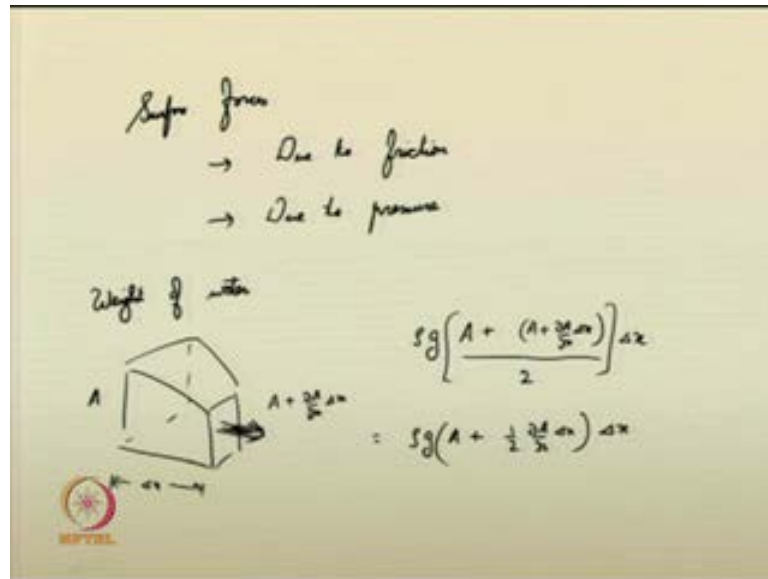 Surface forces
→ Due to friction
→ Due to pressure
Weight of water
A
A + ∂A/∂x Δx
Δx
ρg[(A + (A + ∂A/∂x Δx))/2]Δx
= ρg(A + 1/2 ∂A/∂x Δx) Δx
NPTEL